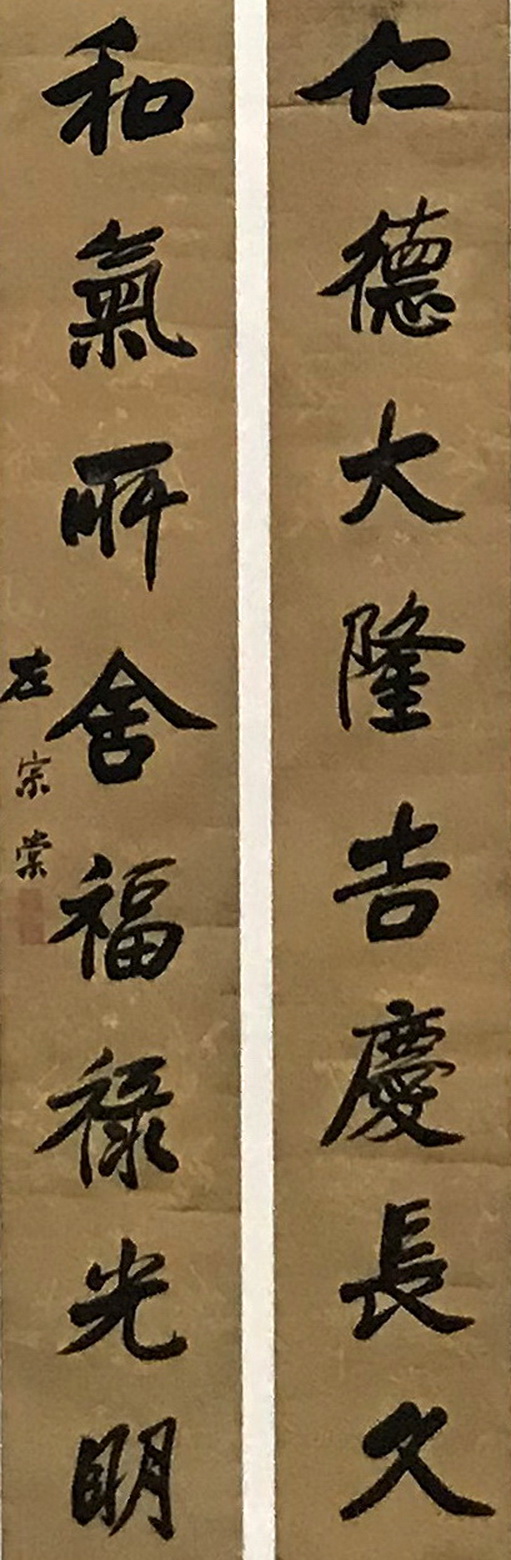 仁德大隆吉慶長久
和氣所舍福祿光明
左宗棠